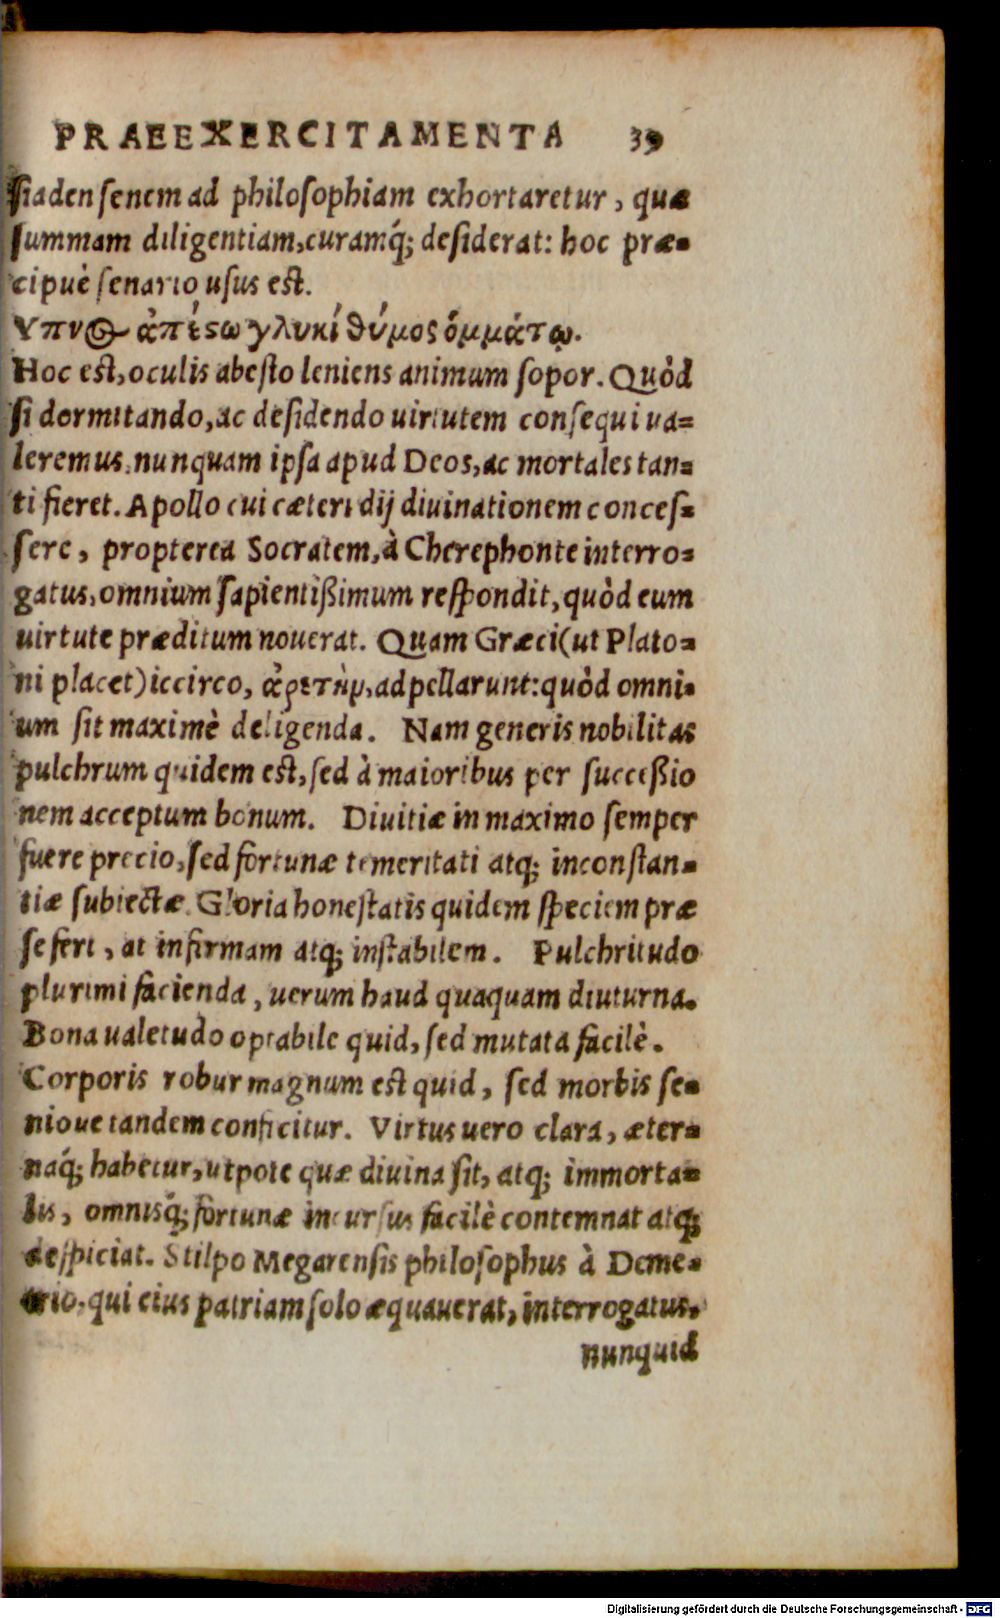 PRAEEXERCITAMENTA 39
ſiaden ſenem ad philoſophiam exhortaretur, quæ
ſummam diligentiam, curamq́; deſiderat: hoc præ-
cipuè ſenario uſus eſt.
Υπνος ἀπέςω γλυκί θύμος ὄμμάτῳ.
Hoc eſt, oculis abeſto leniens animum ſopor. Quòd
ſi dormitando, ac deſidendo uirtutem conſequi ua=
leremus, nunquam ipſa apud Deos, ac mortales tan=
ti fieret. Apollo cui cæteri dij diuinationem conceſ-
ſere, propterea Socratem, à Cherephonte interro=
gatus, omnium ſapientißimum reſpondit, quòd eum
uirtute præditum nouerat. Quam Græci (ut Plato=
ni placet) iccirco, ἀρετὴν, adpellarunt: quòd omni-
um ſit maximè deligenda. Nam generis nobilitas
pulchrum quidem eſt, ſed à maioribus per ſucceßio
nem acceptum bonum. Diuitiæ in maximo ſemper
fuere precio, ſed fortunæ temeritati atq; inconſtan-
tiæ ſubiectæ. Gloria honeſtatis quidem ſpeciem præ
ſe fert, at infirmam atq; inſtabilem. Pulchritudo
plurimi facienda, uerum haud quaquam diuturna.
Bona ualetudo optabile quid, ſed mutata facilè.
Corporis robur magnum eſt quid, ſed morbis ſe-
nioue tandem conficitur. Virtus uero clara, æter-
naq́; habetur, utpote quæ diuina ſit, atq; immorta-
lis, omnisq́; fortunæ incurſus facilè contemnat atq;
deſpiciat. Stilpo Megarenſis philoſophus à Deme-
trio, qui eius patriam ſolo æquauerat, interrogatus,
nunquid
Digitalisierung gefördert durch die Deutsche Forschungsgemeinschaft - DFG